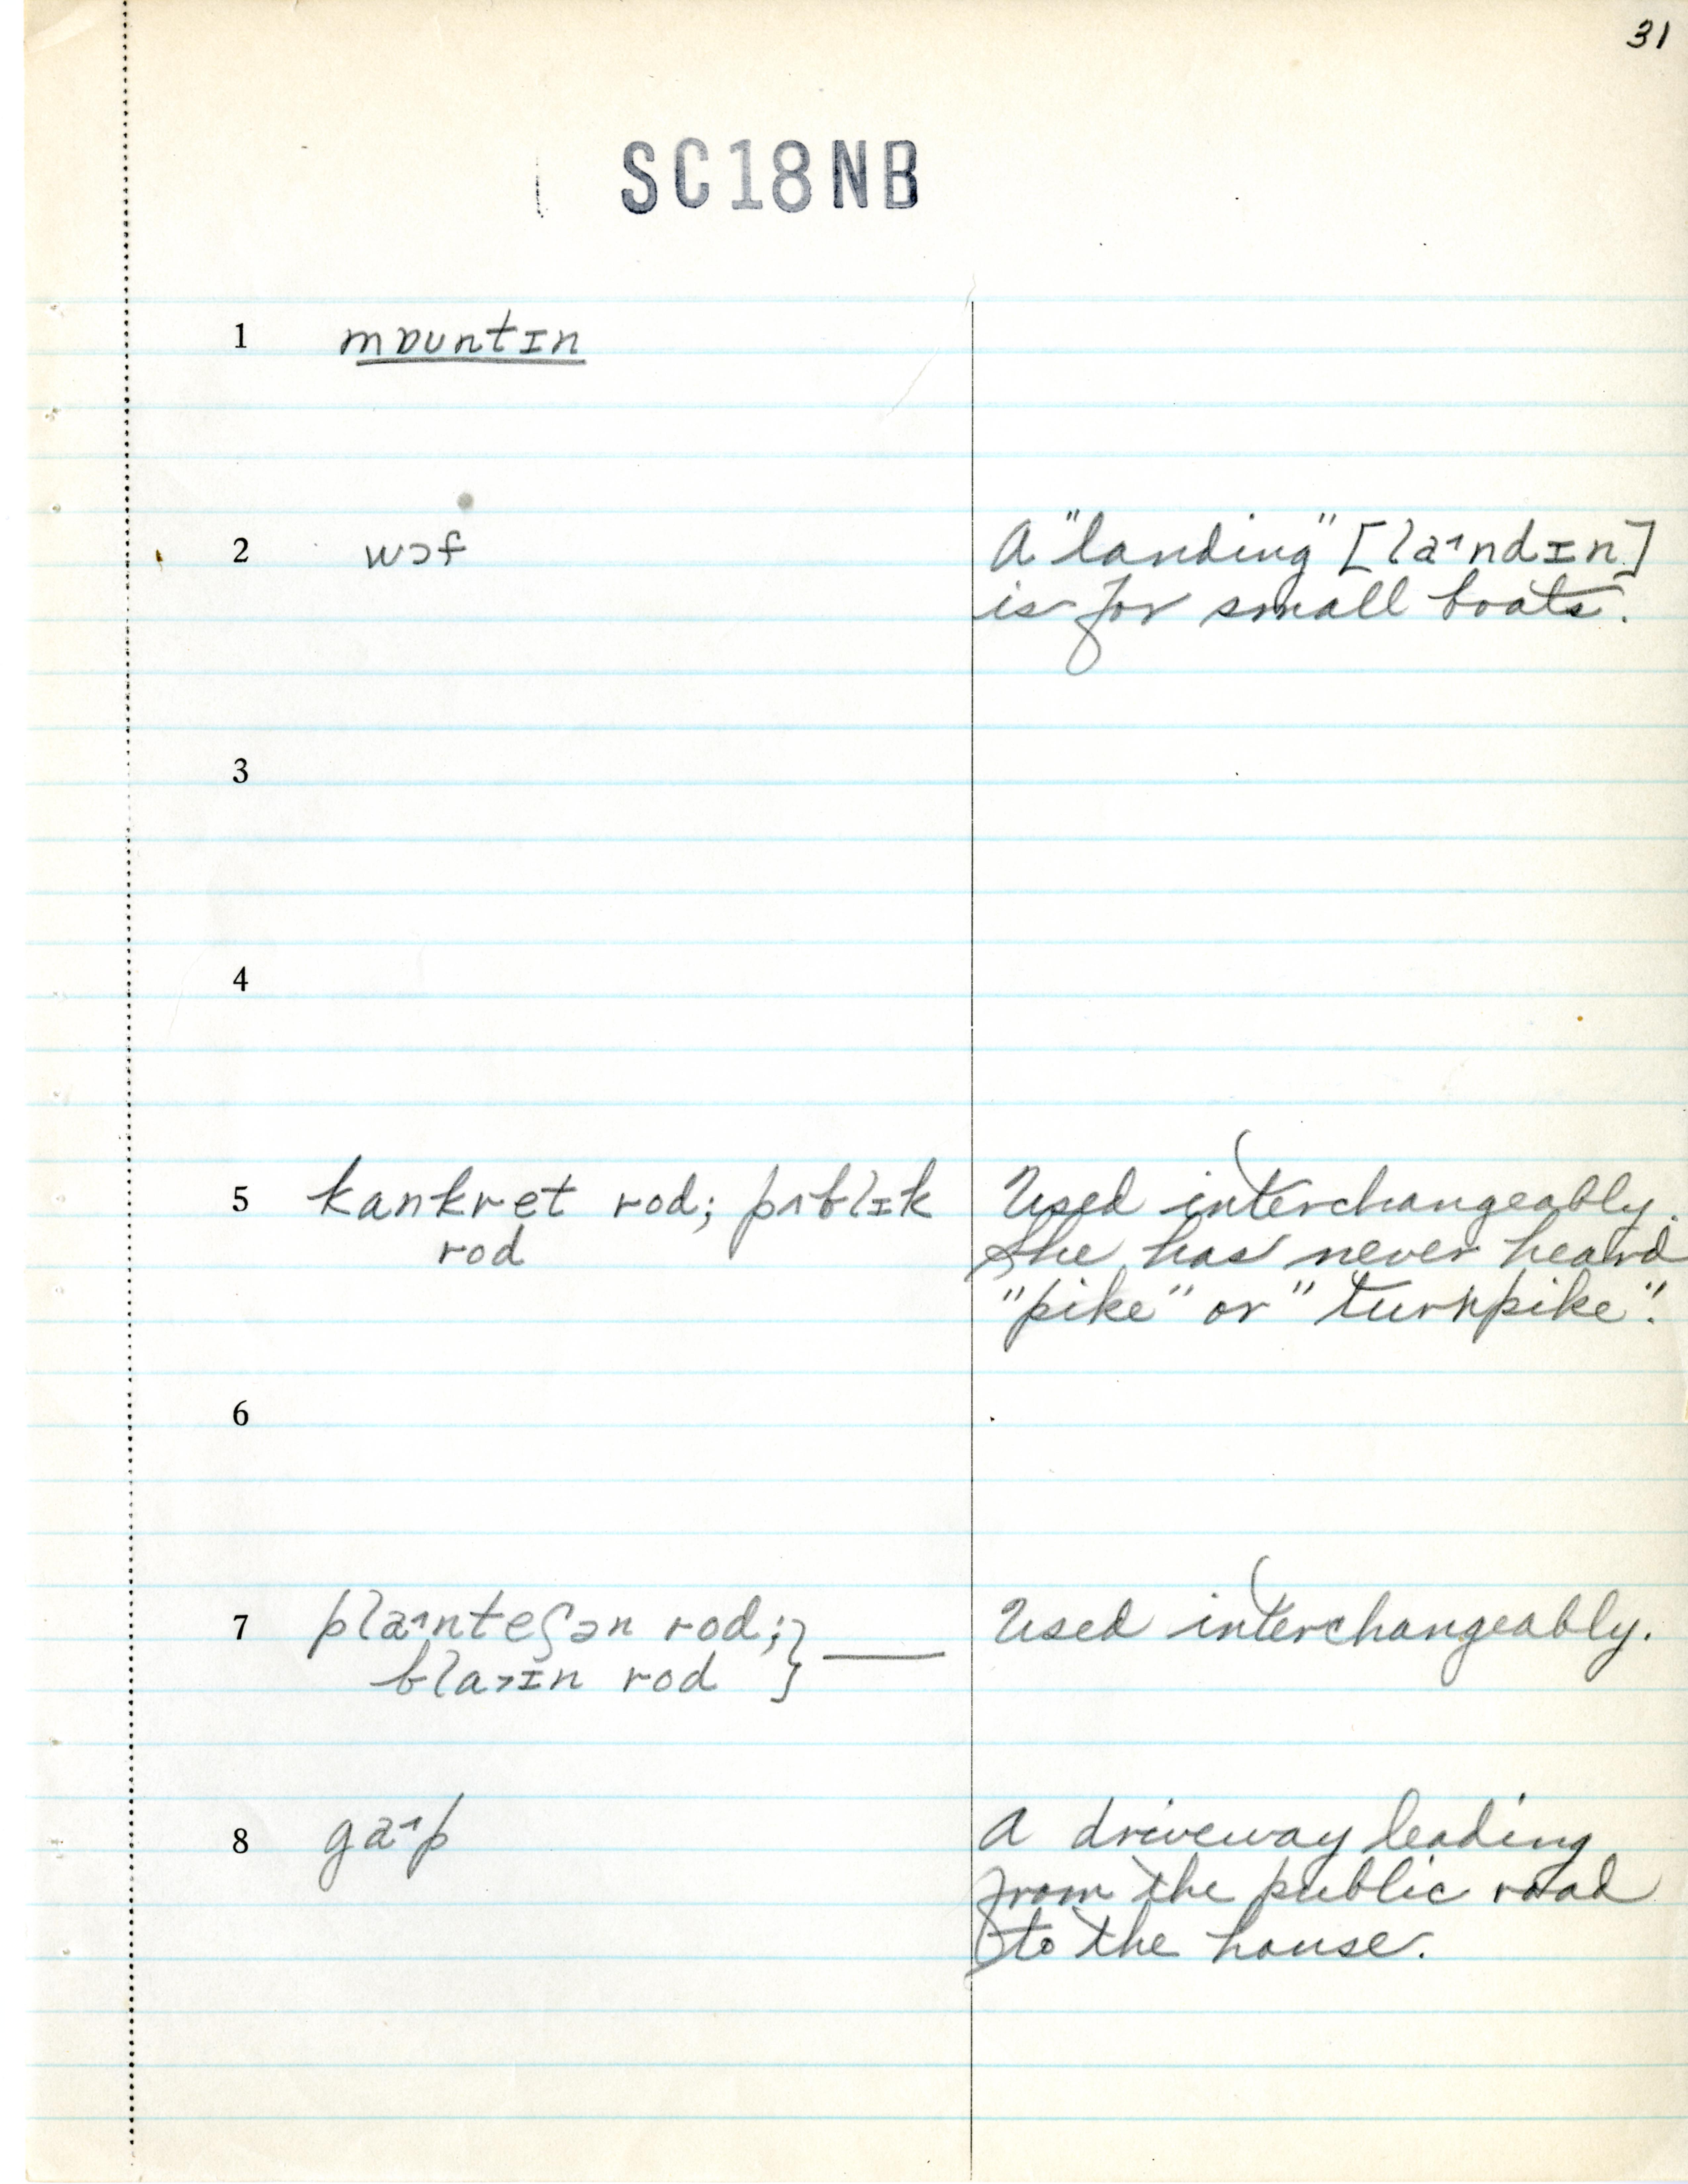 31
SC18NB
1 mɒuntɪn
2 wɔf A "landing" [la˄ndɪn]
is for small boats.
3
4
5 kankret rod; pʌblɪk Used interchangeably.
rod She has never heard
"pike" or "turnpike".
6
7 pla˄nteʃən rod; } — Used interchangeably.
bla˃ɪn rod
8 ga˄p A driveway leading
from the public road
to the house.